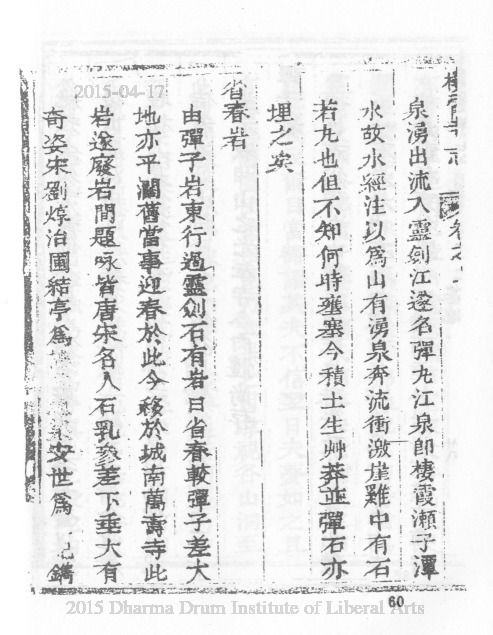 棲霞寺志 卷之
泉湧出流入靈劍江遂名彈丸江泉卽棲霞瀨子潭
水故水經注以爲山有湧泉奔流衝激崖難中有石
若丸也但不知何時壅塞今積土生艸莽並彈石亦
埋之矣
省春岩
由彈子岩東行過靈劍石有岩曰省春較彈子差大
地亦平濶舊當事迎春於此今移於城南萬壽寺此
岩遂廢岩間題咏皆唐宋名人石乳參差下垂大有
奇姿宋劉焞治圃結亭爲 安世爲 記鐫
2015-04-17
60
2015 Dharma Drum Institute of Liberal Arts